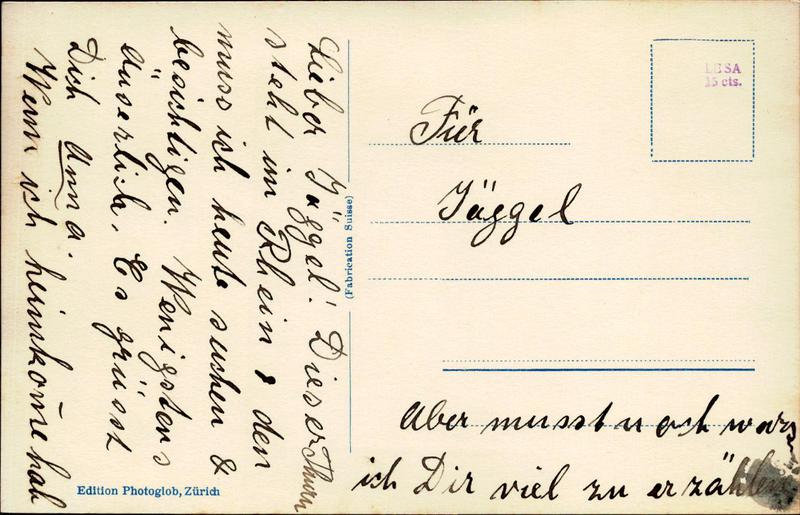 Lieber Jäggel! Dieser Thurm
steht im Rhein & den
muss ich heute suchen &
besichtigen. Wenigstens
äuserlich. Es grüsst
Dich Anna.
Wenn ich heimkome hab
ich Dir viel zu erzählen
Aber musst noch
Für
Jäggel
LESA
15 cts.
(Fabrication Suisse)
Edition Photoglob, Zürich